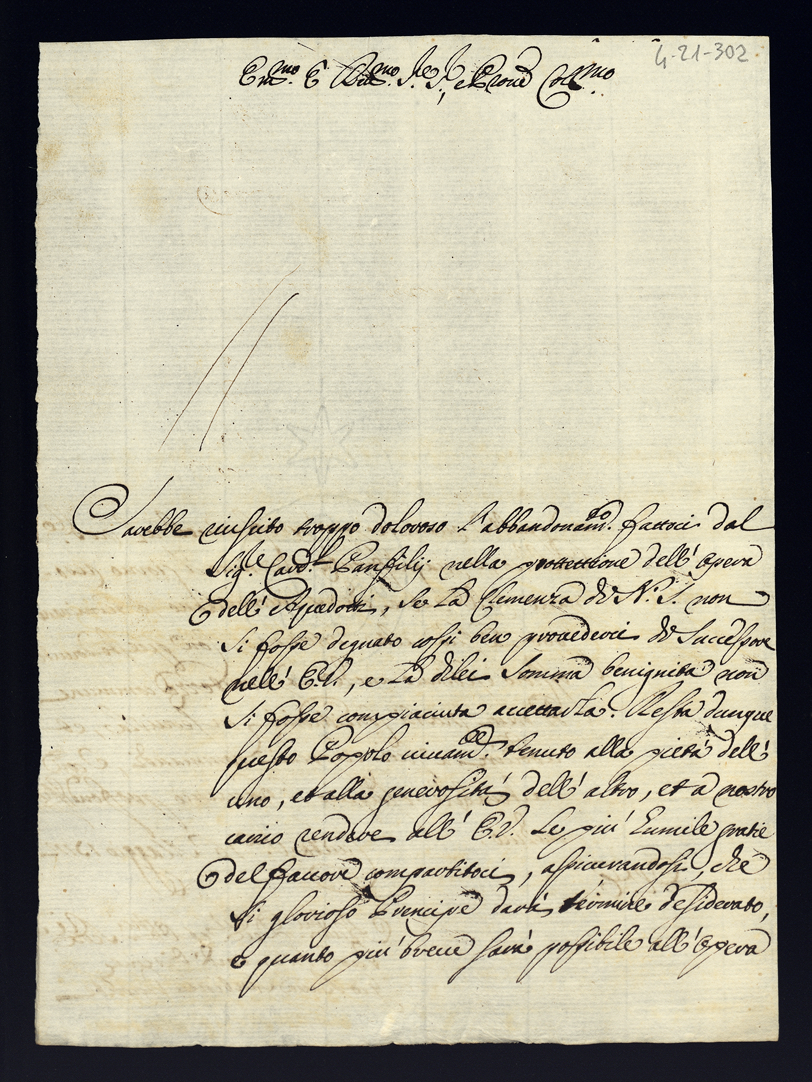 4-21-302
Em.mo e Rev.mo Sig.re Sig.re, e Pron.e Col.mo
Sarebbe riuscito troppo doloroso l'abbandonam.to fattoci dal
Sig.re Card.le Panfilij nella protettione dell'Opera
dell'Aquedotti, se la Clemenza di N. S. non
si fosse degnato cossì ben provederci di Successore
nell'E.V., e la dilei somma benignità non
si fosse compiaciuta accettarla. Resta dunque
questo Popolo vivam.te tenuto alla pietà dell'
uno, et alla generosità dell'altro, et a nostro
carico rendere all'E.V. le più humile gratie
del favore compartitoci, assicurandosi, che
sì glorioso Prencipe darà termine desiderato,
e quanto più breve sarà possibile all'Opera